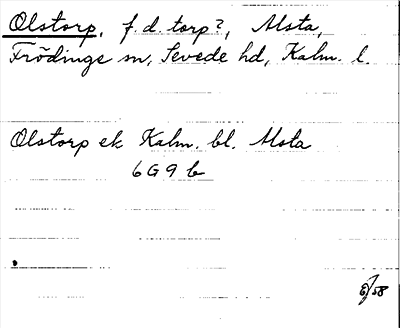 Olstorp, f.d. torp?, Alsta,
Frödinge sn, Sevede hd, Kalm. l.
Olstorp ek Kalm. bl. Alsta
6 G 9 b